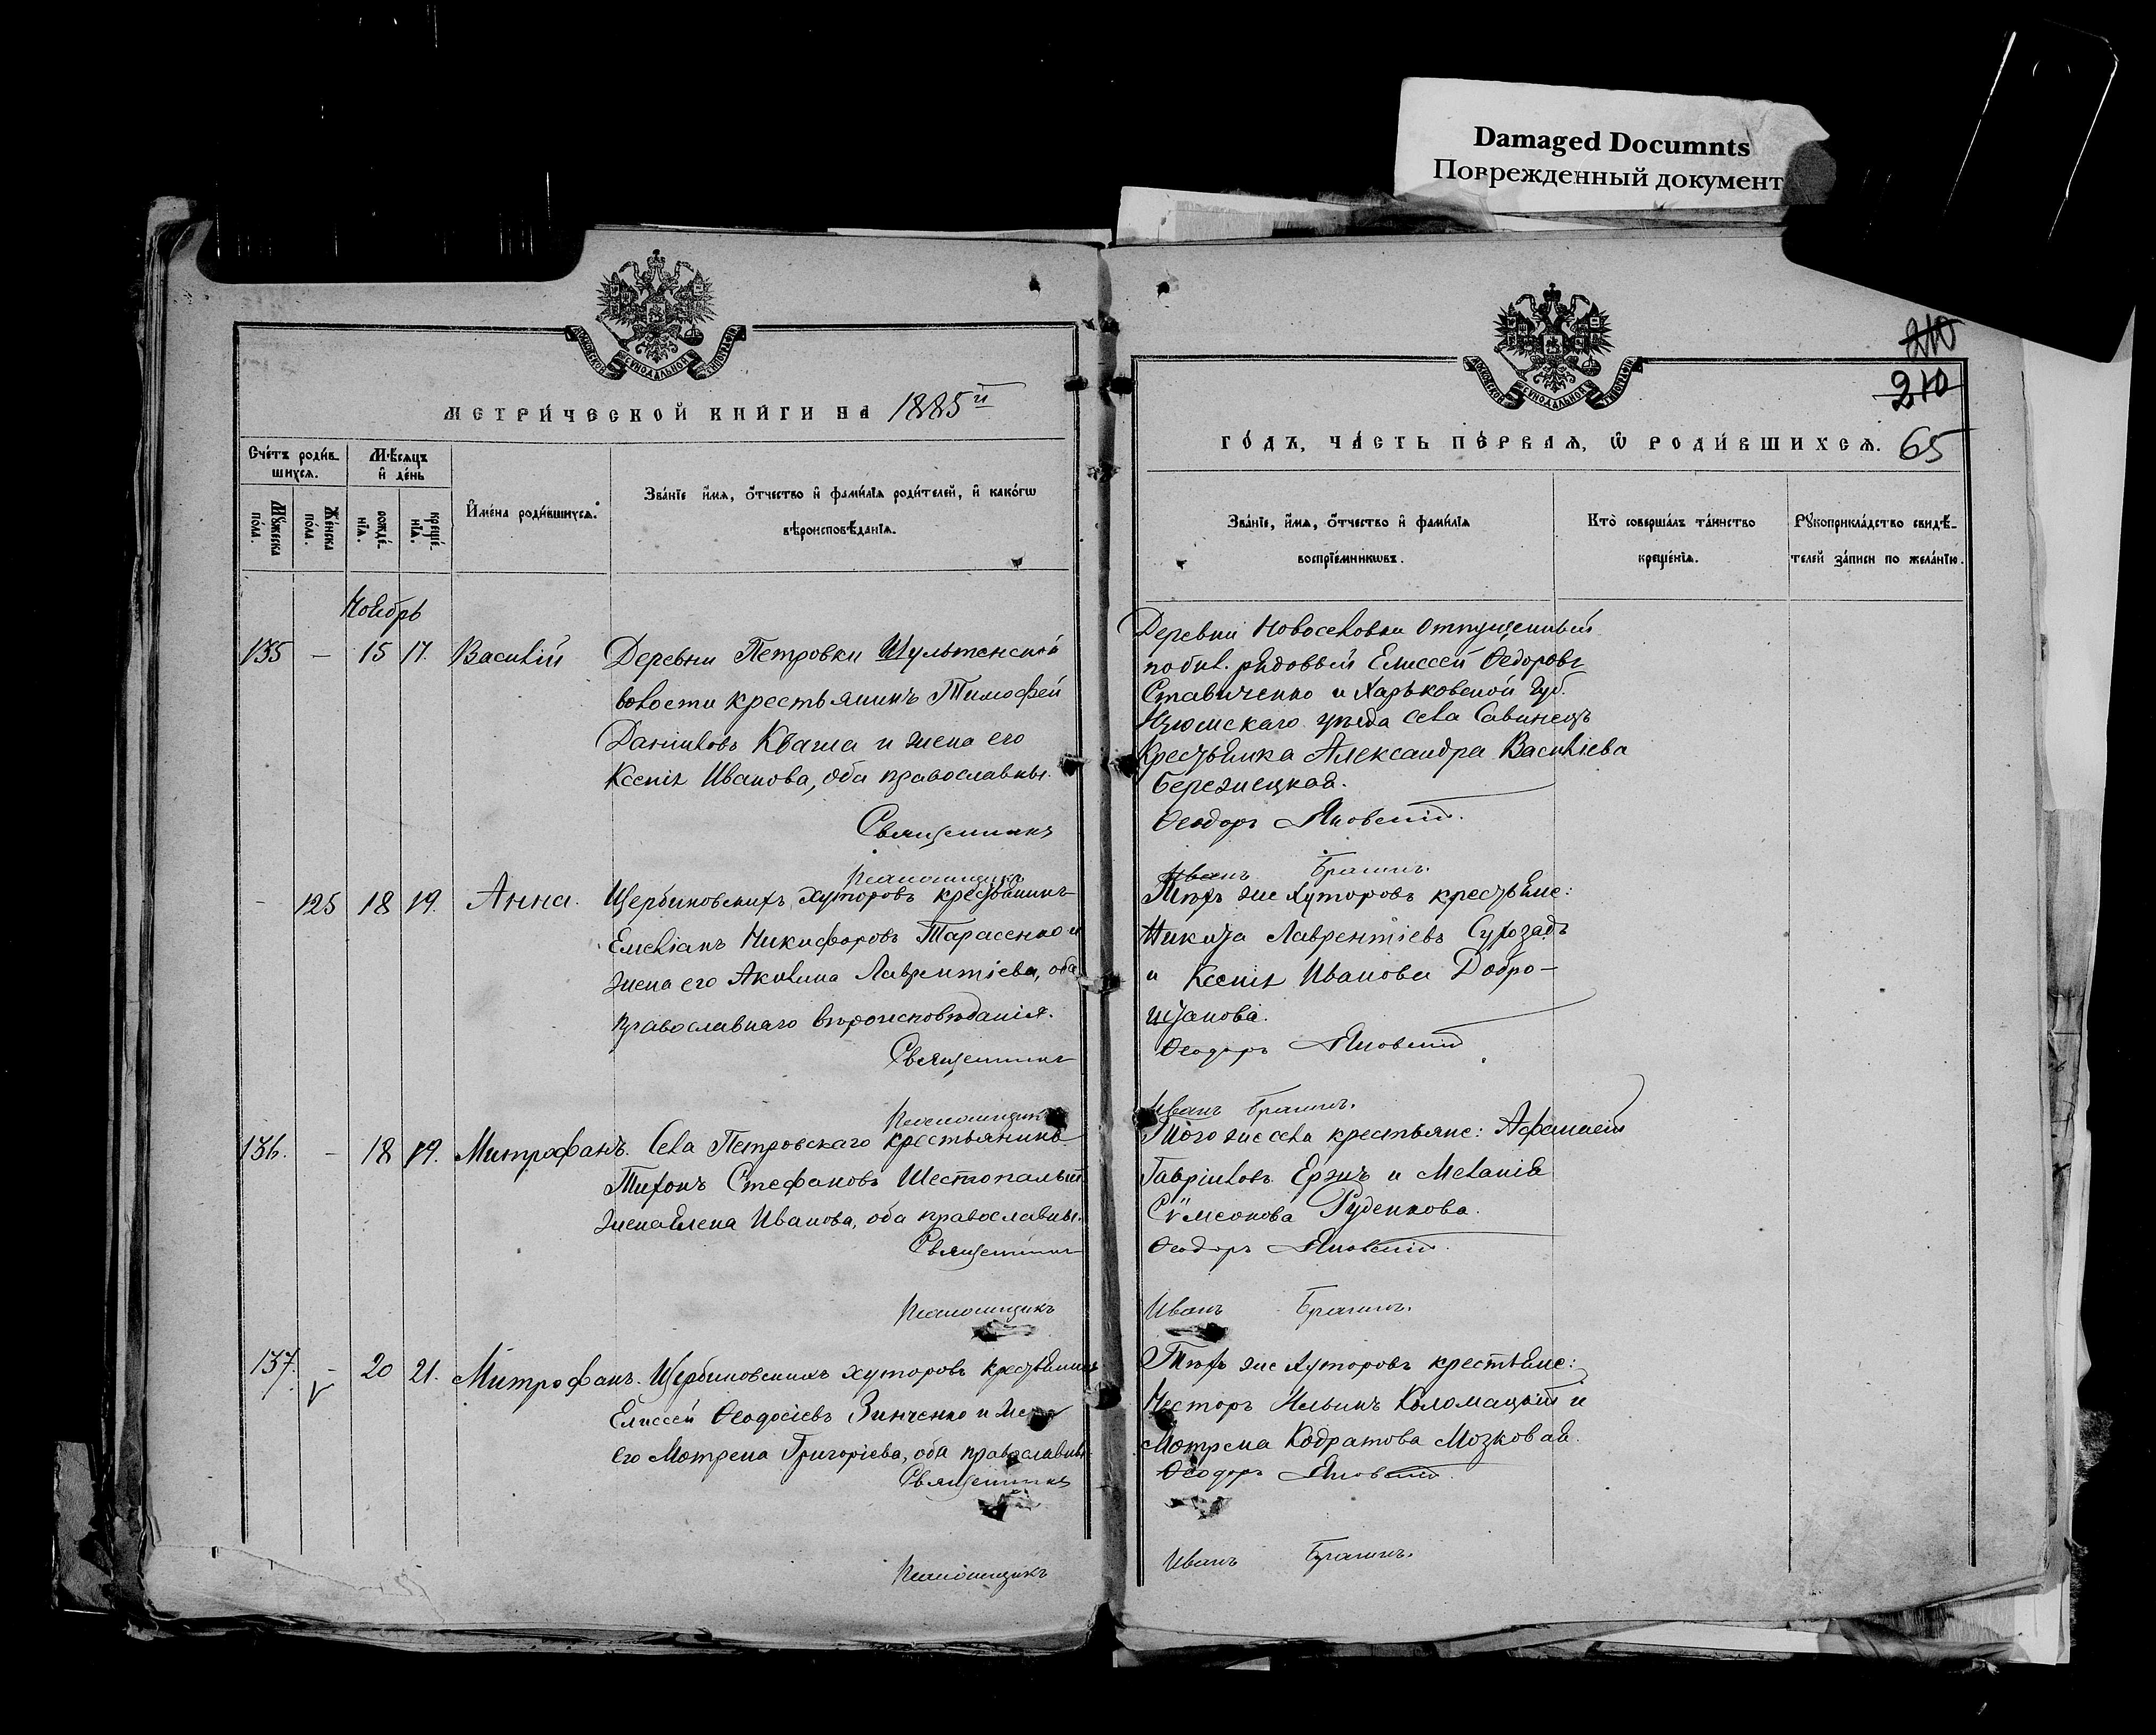 Damaged Documnts
Поврежденный документ
МОСКОВСКОЙ СѴНОДАЛЬНОЙ ТИПОГРАФІИ
МЕТРИ́ЧЕСКОЙ КНИ́ГИ НА 1885й
Сче́тъ роди́в-
шихся.
Мѣ́сяцъ
и҆ де́нь
Мꙋ́жеска
по́ла.
Же́нска
по́ла.
рожде́-
нїѧ.
креще́-
нїѧ.
И҆мена̀ роди́вшихсѧ.
Зва́нїе и҆́мѧ, ѻ҆́тчество и҆ фами́лїѧ роди́телей, и҆ како́гѡ
вѣроисповѣ́данїѧ.
Ноябрь
135 — 15 17. Василій Деревни Петровки Шультенской
волости крестьянинъ Тимофей
Даніиловъ Кваша и жена его
Ксенія Иванова, оба православны.
Священникъ
Псаломщикъ
- 125 18 19. Анна. Щербиновскихъ хуторовъ крестьянинъ
Емеліанъ Никифоровъ Тарасенко и
жена его Акилина Лаврентіева, оба
православнаго вѣроисповѣданія.
Священникъ
Псаломщикъ
136. - 18 19. Митрофанъ. Села Петровскаго крестьянинъ
Тихонъ Стефановъ Шестопалый
жена Елена Иванова, оба православны.
Священникъ
Псаломщикъ
137. - 20 21. Митрофанъ. Щербиновскихъ хуторовъ крестьянинъ
Елиссей Ѳеодосіевъ Зинченко и жена
его Мотрена Григоріева, оба православны
Священникъ
Псаломщикъ
МОСКОВСКОЙ СѴНОДАЛЬНОЙ ТИПОГРАФІИ
210
210
ГО́ДЪ, ЧА́СТЬ ПЕ́РВАѦ, Ѡ҆ РОДИ́ВШИХСѦ. 65
Зва́нїе, и҆́мѧ, ѻ҆́тчество и҆ фами́лїѧ
воспрїе́мникѡвъ.
Кто̀ соверша́лъ та́инство
креще́нїѧ.
Рꙋкоприкла́дство свидѣ́-
телей за́писи по жела́нїю.
Деревни Новоселовки отпущенный
по бил. рядовый Елиссей Ѳедоровъ
Ставиченко и Харьковской губ.
Изюмскаго уѣзда села Савинецъ
Крестьянка Александра Василіева
Бережецкая.
Ѳеодоръ Яновскій.
Иванъ Брагинъ.
Тѣхъ же хуторовъ крестьяне:
Никита Лаврентіевъ Сухозадъ
и Ксенія Иванова Добро-
штанова.
Ѳеодоръ Яновскій
Иванъ Брагинъ.
Того же села крестьяне: Афанасій
Гавріиловъ Ержъ и Меланія
Сѵмеонова Руденкова.
Ѳеодоръ Яновскій.
Иванъ Брагинъ.
Тѣхъ же хуторовъ крестьяне:
Несторъ Ильинъ Коломацкій и
Мотрена Кодратова Мозковая.
Ѳеодоръ Яновскій.
Иванъ Брагинъ.